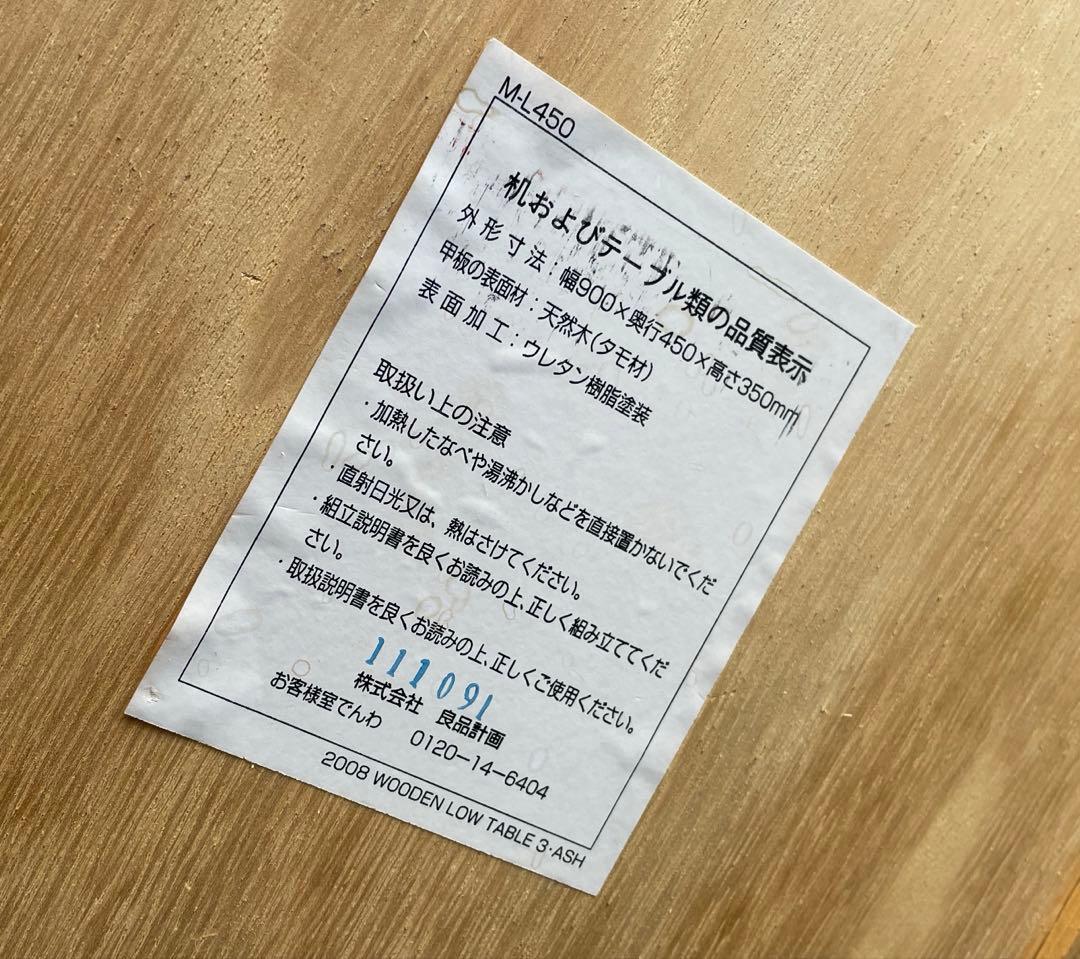 M-L450
机およびテーブル類の品質表示
外形寸法：幅900×奥行450×高さ350mm
甲板の表面材：天然木(タモ材)
表面加工：ウレタン樹脂塗装
取扱い上の注意
・加熱したなべや湯沸かしなどを直接置かないでくだ
さい。
・直射日光又は、熱はさけてください。
・組立説明書を良くお読みの上、正しく組み立ててくだ
さい。
・取扱説明書を良くお読みの上、正しくご使用ください。
111091
株式会社 良品計画
お客様室でんわ 0120-14-6404
2008 WOODEN LOW TABLE 3・ASH